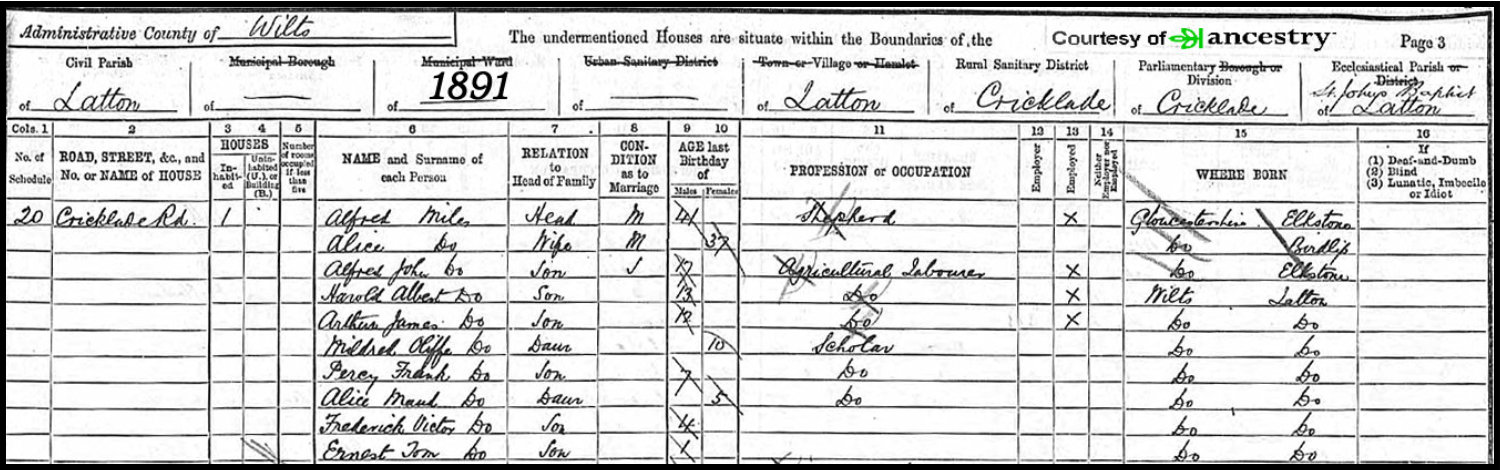 Administrative County of Wilts
The undermentioned Houses are situate within the Boundaries of the
Courtesy of ancestry
Page 3
Civil Parish of Latton
Municipal Borough of —
Municipal Ward of
1891
Urban Sanitary District of —
Town or Village or Hamlet of Latton
Rural Sanitary District of Cricklade
Parliamentary Borough or Division of Cricklade
Ecclesiastical Parish or District of St. Johns Baptist Latton
Cols. 1 2 3 4 5 6 7 8 9 10 11 12 13 14 15 16
No. of Schedule
ROAD, STREET, &c., and No. or NAME of HOUSE
HOUSES
In-habit-ed
Unin-habited (U.), or Building (B.)
Number of rooms occupied if less than five
NAME and Surname of each Person
RELATION to Head of Family
CON-DITION as to Marriage
AGE last Birthday of
Males Females
PROFESSION or OCCUPATION
Employer
Employed
Neither Employer nor Employed
WHERE BORN
If
(1) Deaf-and-Dumb
(2) Blind
(3) Lunatic, Imbecile or Idiot
20 Cricklade Rd. 1 Alfred Miles Head M 41 Shepherd X Gloucestershire Elkstone
Alice Do Wife M 37 Do Birdlip
Alfred John Do Son S 17 Agricultural Labourer X Do Elkstone
Harold Albert Do Son 13 Do X Wilts Latton
Arthur James Do Son 12 Do X Do Do
Mildred Oliffe Do Daur 10 Scholar Do Do
Percy Frank Do Son 7 Do Do Do
Alice Maud Do Daur 5 Do Do Do
Frederick Victor Do Son 4 Do Do
Ernest Tom Do Son 1 Do Do